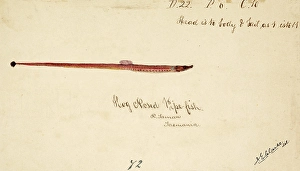 D.22. P. 0. C.10
Head is to body & tail, as 1 is to
Hog Nosed Pipe-fish
R. Tamar
Tasmania
72